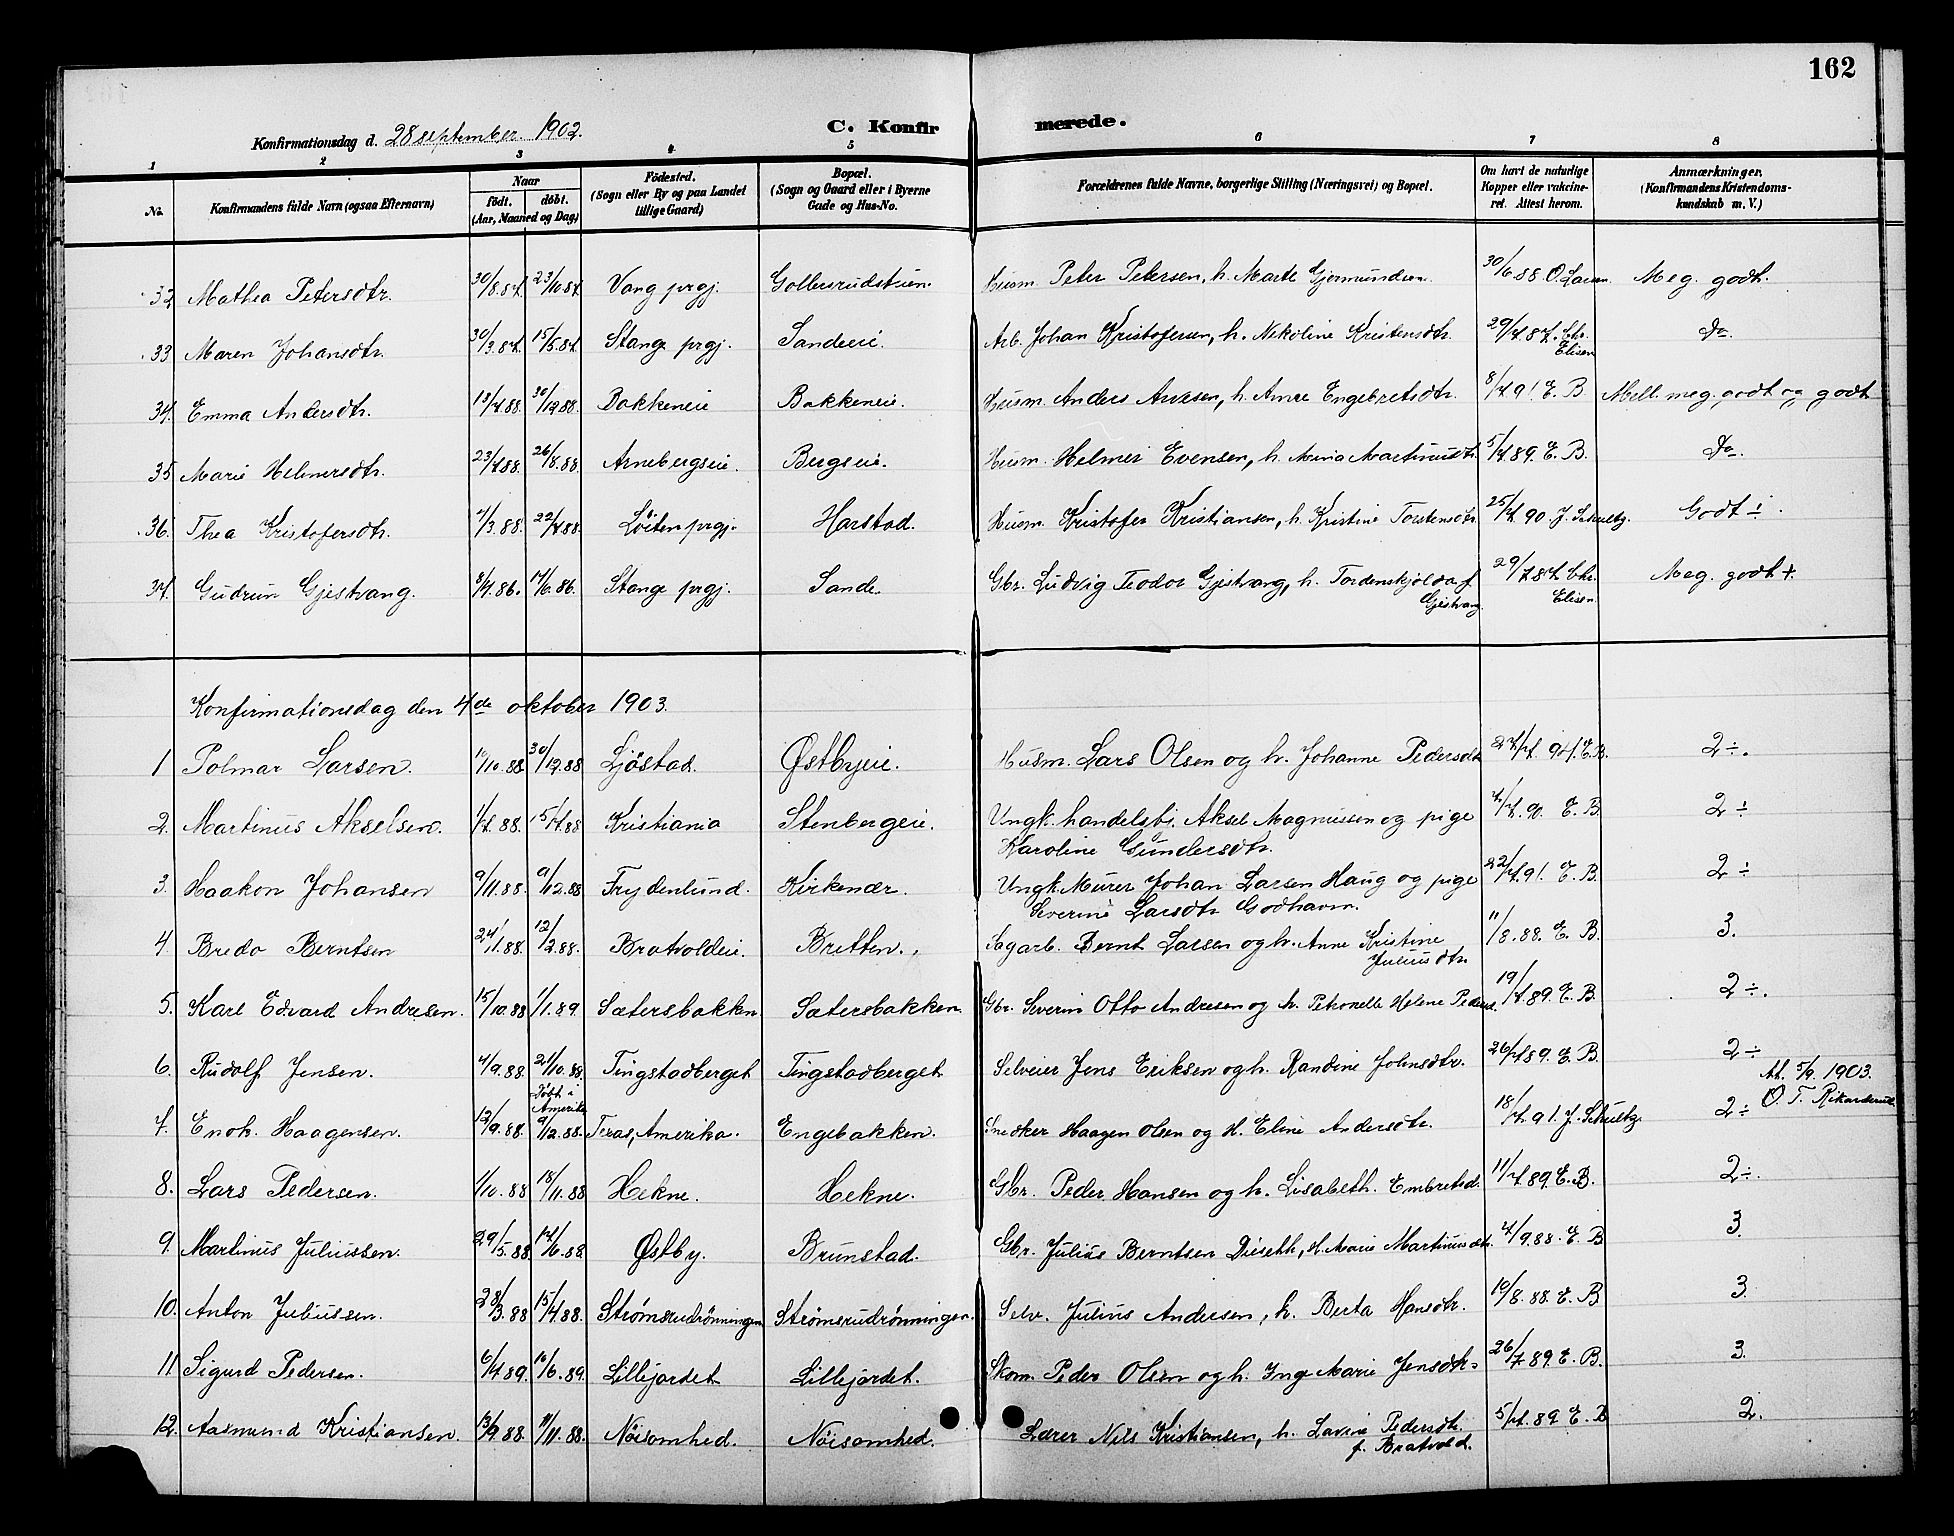 162
Konfirmationsdag d. 28 september. 1902. C. Konfirmerede.
1 2 3 4 5 6 7 8
No. Konfirmandens fulde Navn (ogsaa Efternavn) Naar født. døbt. (Aar, Maaned og Dag) Fødested. (Sogn eller By og paa Landet tillige Gaard) Bopæl. (Sogn og Gaard eller i Byerne Gade og Hus-No. Forældrenes fulde Navne, borgerlige Stilling (Næringsvei) og Bopæl. Om havt de naturlige Kopper eller vakcineret. Attest herom. Anmærkninger. (Konfirmandens Kristendomskundskab m. V.)
32 Mathea Petersdtr. 30/8.87. 23/10.87. Vang prgj. Gollersrudstuen. Husm. Peter Petersen, h. Marte Gjermundsen. 30/6 88 O. Larsen. Meg. godt.
33 Maren Johansdtr. 30/3.87. 15/5.87. Stange prgj. Sandeeie. Arb. Johan Kristofersen, h. Nikoline Kristensdtr. 29/7.87. Chr. Elisen Do.
34. Emma Andersdtr. 13/7.88. 30/12.88. Bakkeneie Bakkeneie. Husm. Anders Arnesen, h. Anne Engebretsdtr. 8/7.91. E. B. Mell. meg. godt og godt
35 Marie Helmersdtr. 23/7.88. 26/8.88. Arnebergseie. Bergseie. Husm. Helmer Evensen, h. Maria Martinusdtr. 5/7.89. E. B. Do.
36. Thea Kristofersdtr. 2/3.88. 22/4.88. Löiten prgj. Harstad. Husm. Kristofer Kristiansen, h. Kristine Torstensdtr. 25/7.90. J. Schultz. Godt ÷.
37. Gudrun Gjestvang. 8/4.86. 17/6.86. Stange prgj. Sande. Gbr. Ludvig Teodor Gjestvang, h. Tordenskjolda f. Gjestvang. 29/7.87. Chr. Elisen. Meg. godt +.
Konfirmationsdag den 4de oktober 1903.
1 Polmar Larsen. 10/10.88 30/12.88 Ljöstad. Østbyeie. Husm. Lars Olsen og h. Johanne Pedersdtr. 27/7.91. E. B. 2÷.
2. Martinus Akselsen. 1/7.88. 15/7.88 Kristiania Stenbergeie. Ungk. handelsbj. Aksel Magnussen og pige Karoline Gundersdtr. 7/7.90. E. B. 2÷
3. Haakon Johansen 9/11.88. 9/12.88 Frydenlund. Kirkenær. Ungk. Murer Johan Larsen Haug og pige Severine Larsdtr Godhavn. 22/7.91. E. B. 2÷
4. Bredo Berntsen 24/11.88. 12/2.88. Bratvoldeie. Bretten. Sagarb. Bernt Larsen og h. Anne Kristine Juliusdtr. 11/8.88. E. B. 3.
5. Karl Edvard Andresen. 15/10.88 1/1.89. Sætersbakken Sætersbakken. Gbr. Severin Otto Andresen og h. Petronelle Helene Peders. 19/7.89. E. B. 2÷.
6. Rudolf Jensen. 4/9.88. 21/10.88. Tingstadberget Tingstadberget Selveier Jens Eriksen og h. Randine Johnsdtr. 26/7.89. E. B. 2÷
7. Enok. Haagensen. 12/9.88. Döbt i Amerika 9/12.88. Texas, Amerika. Engebakken. Snedker Haagen Olsen og H. Eline Andersdtr. 18/7.91. J. Schultz 2÷ At. 5/9. 1903. O. T. Rikardsrud
8. Lars Pedersen. 1/10.88 18/11.88 Hekne. Hekne. Gbr. Peder Hansen og h. Lisabeth. Embretsd. 11/7.89. E. B. 2÷.
9. Martinus Juliussen. 29/5.88. 17/6.88. Østby. Brunstad. Gbr. Julius Berntsen Diseth, H. Marie Martinusdtr. 7/9.88. E. B 3.
10. Anton Juliussen. 28/3.88 15/4.88. Strømsrudrönningen Strømsrudrönningen. Selv. Julius Andersen, h. Berta Hansdtr. 19/8.88. E. B 3.
11 Sigurd Pedersen. 6/4 89. 10/6.89. Lillejordet Lillejordet. Skom. Peder Olsen og h. Inge Marie Jensdtr. 26/7.89. E. B. 3.
12. Aasmund Kristiansen. 13/9.88. 11/11.88. Nöisomhed. Nöisomhed. Lærer Nils Kristiansen, h. Lavine Pedersdtr. f. Bratvold. 5/7.89 E. B 2.